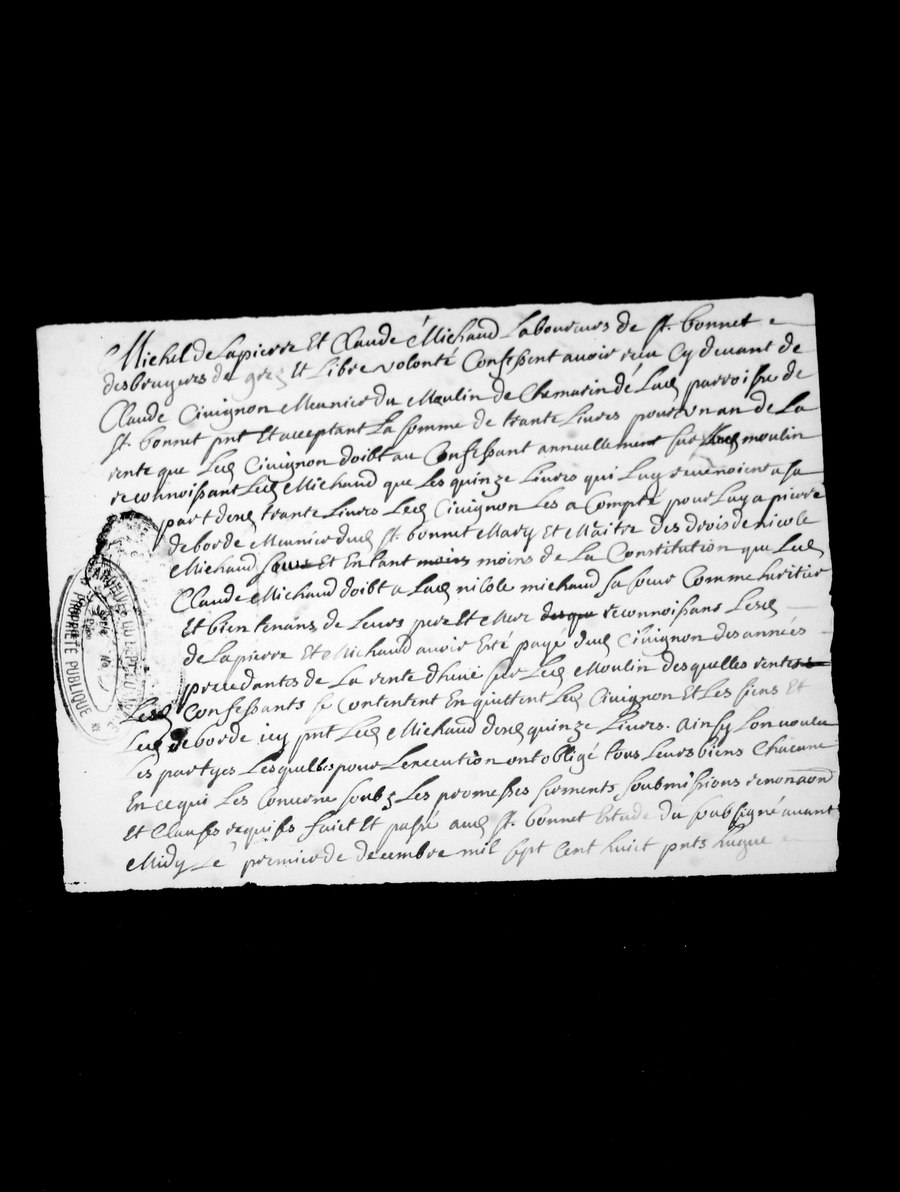 Michel de Lapierre Et Claude Michaud Laboureurs de St. bonnet
desbruyeres de grez Et Libre volonté Confessent avoir receu Cy devant de
Claude Civignon Meunier du Moulin de Chemarin dé Lad parroisse de
St. bonnet pnt Et acceptant La somme de trante Livres pour Un an de La
rente que Led Civignon doibt au Confessant annuellement sur Led moulin
reconnoissant Led Michaud que Les quinze Livres qui Luy revenoient a sa
part desd trante Livres Led Civignon Les a Compté pour Luy a pierre
deborde Meunier dud St. bonnet Mary Et Maitre des drois de nicole
Michaud Sœur Et En tant moins moins de La Constitution que Led
Claude Michaud doibt a Lad nicole michaud sa sœur Comme heritier
Et bien tenans de Leurs pere Et Mere desqu reconnoissans Lesd
de Lapierre Et Michaud avoir Eté payé dud Civignon des années
precedantes de La rente dheuë sur Led Moulin desquelles rentes
Lesd Confessants se Contentent En quittent Led Civignon Et Les siens Et
Led deborde icy pnt Led Michaud desd quinze Livres. Ainsy Lon voulu
Les partyes Lesquelles pour Lexecution ont obligé tous Leurs biens Chacune
En ce qui Les Concerne soubz Les promesses serments soubmissions renon
Et Clauses requises faict Et passé aud St. bonnet Etude du soubsigné avant
Midy Le premier de decembre mil sept Cent huict pnts hugue
ARCHIVES DU
PROPRIETE PUBLIQUE